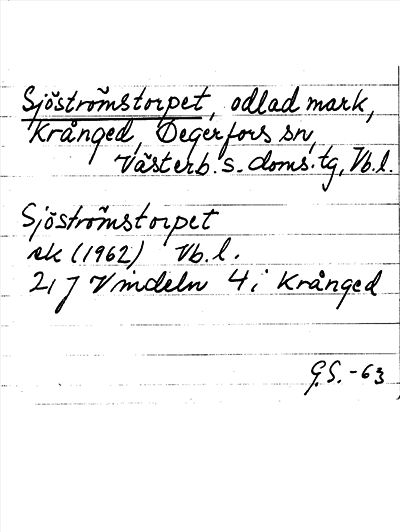 Sjöströmstorpet, odlad mark,
Krånged, Degerfors sn,
Västerb. s. doms. tg, Vb. l.
Sjöströmstorpet
ek (1962) Vb. l.
21 J Vindeln 4 i Krånged
G.S. -63